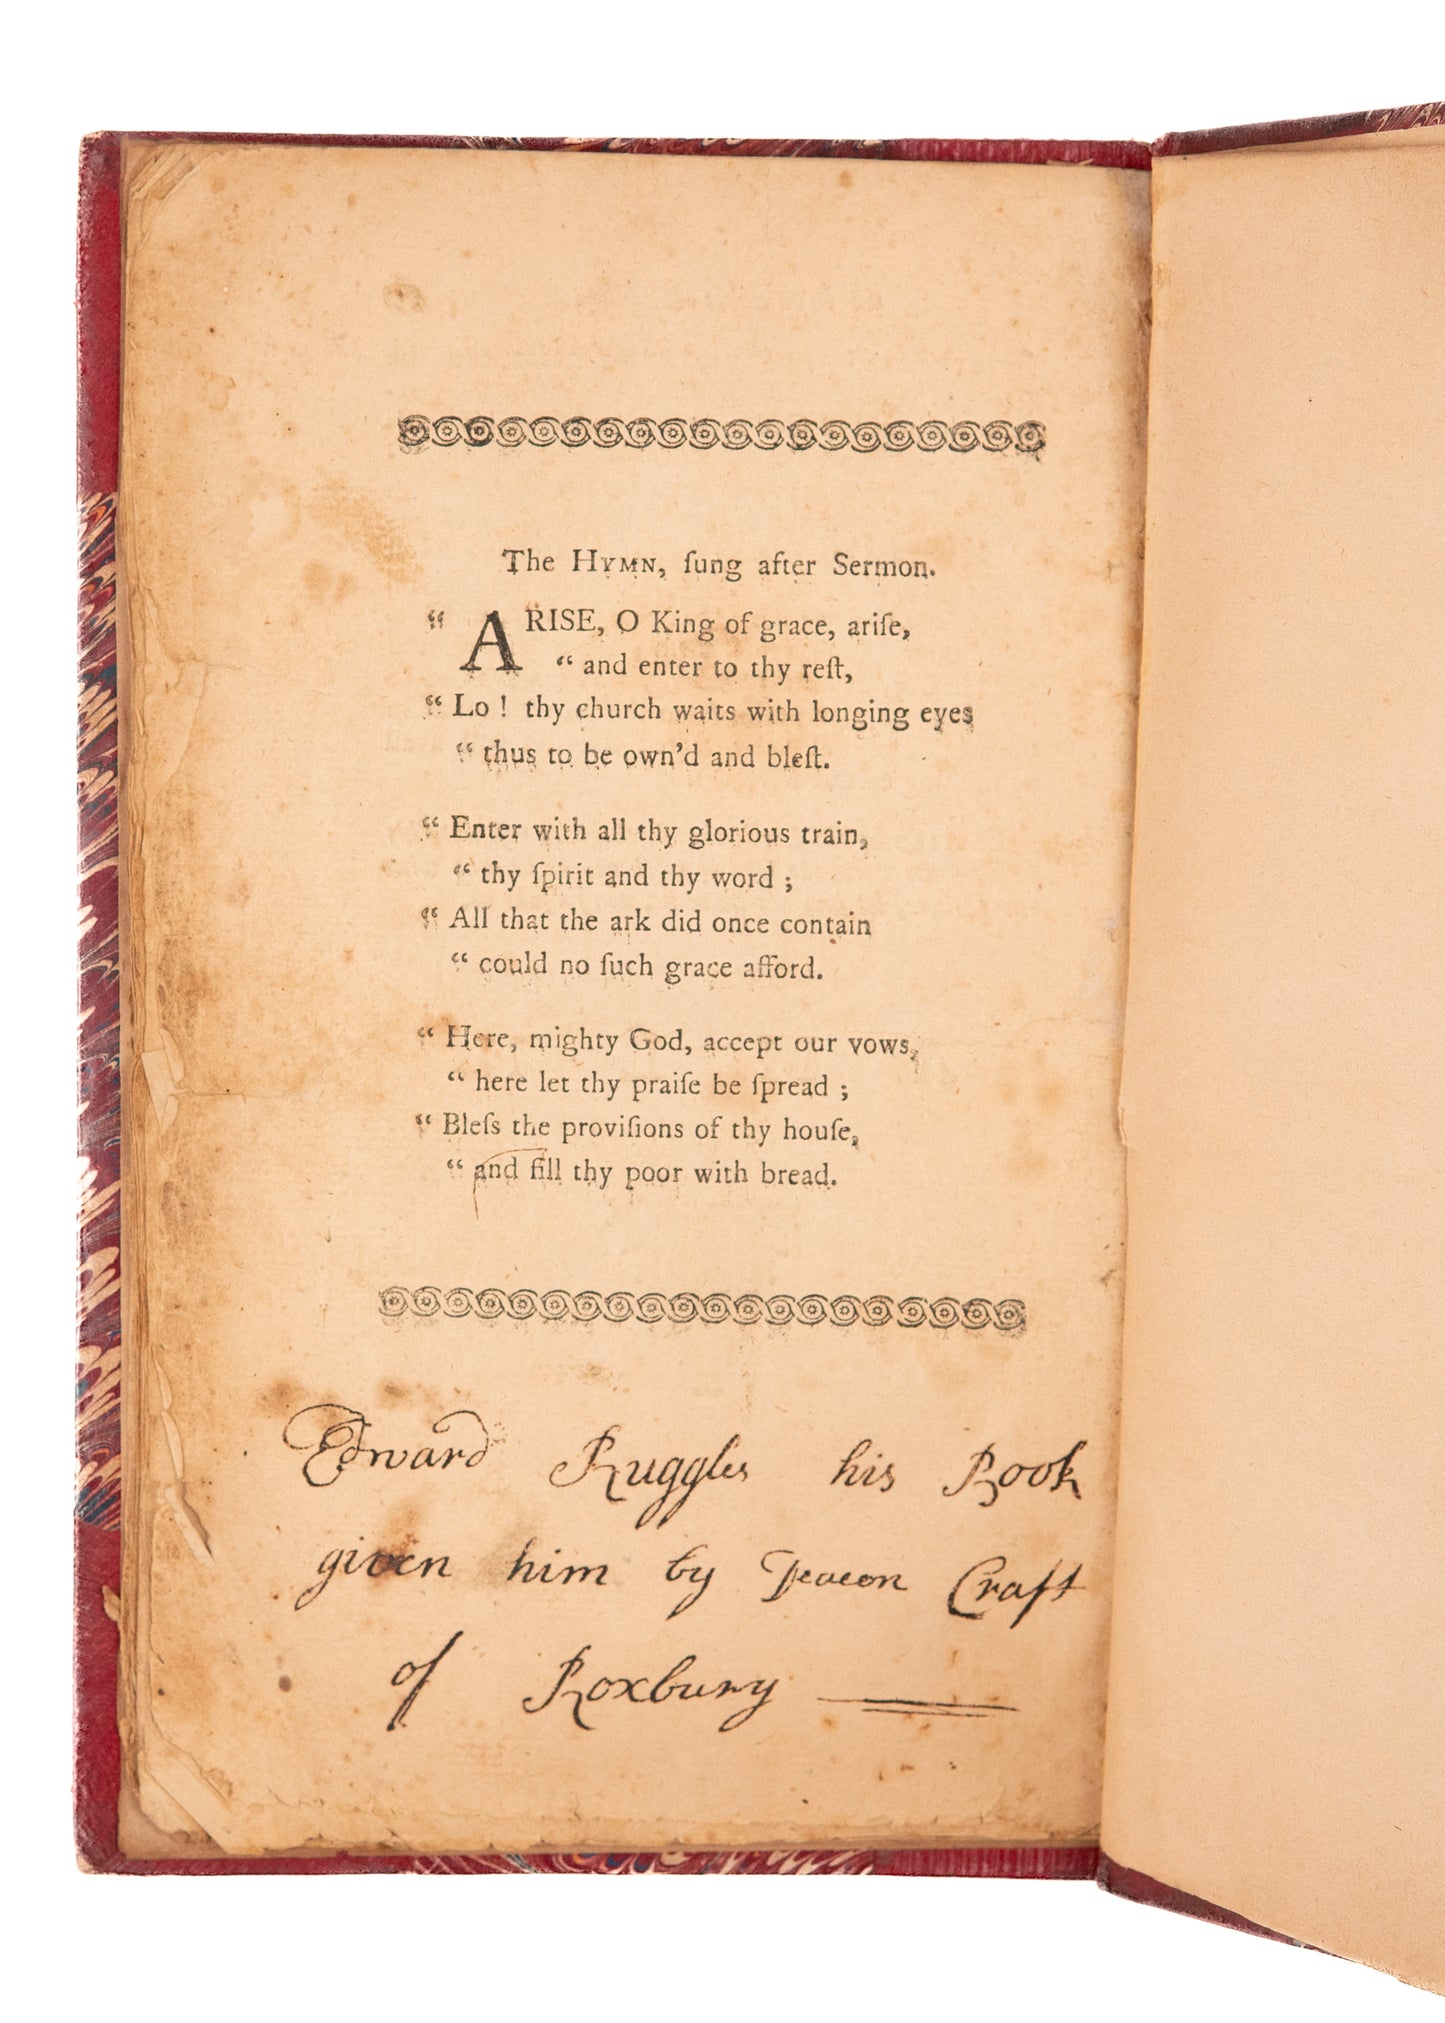 The HYMN, ſung after Sermon.
“ ARISE, O King of grace, ariſe,
“ and enter to thy reſt,
“ Lo ! thy church waits with longing eyes
“ thus to be own’d and bleſt.
“ Enter with all thy glorious train,
“ thy ſpirit and thy word ;
“ All that the ark did once contain
“ could no ſuch grace afford.
“ Here, mighty God, accept our vows,
“ here let thy praiſe be ſpread ;
“ Bleſs the proviſions of thy houſe,
“ and fill thy poor with bread.
Edward Ruggles his Book
given him by Deacon Craft
of Roxbury